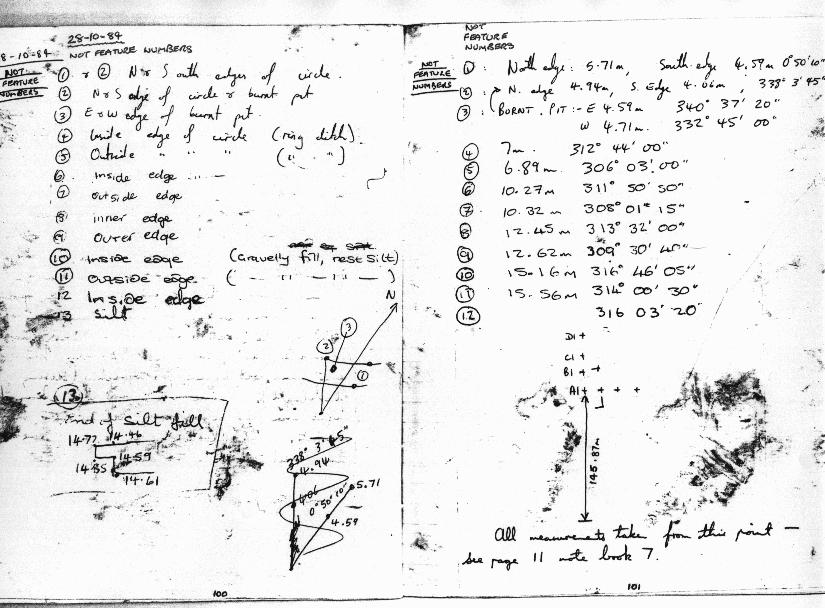 28-10-84
8-10-84 NOT FEATURE NUMBERS
NOT FEATURE NUMBERS
① & ② N & S outh edges of circle.
② N & S edge of circle & burnt pit
③ E & W edge of burnt pit.
④ Inside edge of circle (ring ditch).
⑤ Outside " " " (" " )
⑥ Inside edge
⑦ outside edge
⑧ inner edge
⑨ Outer edge
⑩ Inside edge (Gravelly fill, rest silt)
⑪ outside edge ( " " " )
12 Inside edge
13 Silt
N
③
②
①
⑬
End of silt fill
14.77 14.46
14.59
14.85
14.61
338° 3' 45"
4.94
4.06
0°50'10"
5.71
4.59
100
NOT
FEATURE
NUMBERS
NOT FEATURE NUMBERS
①: North edge: 5.71m, South edge 4.59m 0°50'10"
②: N. edge 4.94m, S. Edge 4.06m, 338° 3' 45"
③: BURNT. PIT:- E 4.59m 340° 37' 20"
W 4.71m. 332° 45' 00"
④ 7m. 312° 44' 00"
⑤ 6.89m. 306° 03.' 00"
⑥ 10.27m 311° 50' 50"
⑦ 10.32m 308° 01" 15"
⑧ 12.45m 313° 32' 00"
⑨ 12.62m 309° 30' 40"
⑩ 15.16m 316° 46' 05"
⑪ 15.56m 314° 00' 30"
⑫ 316 03' 20"
D1 +
C1 +
B1 + +
A1 + + + +
145.87m
All measurements taken from this point —
see page 11 note book 7.
101